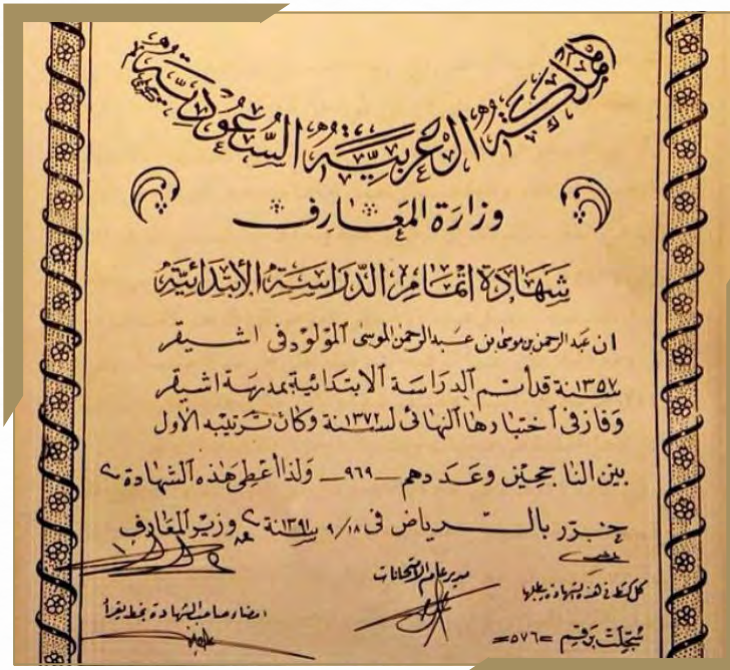 المملكة العربية السعودية
وزارة المعارف
شهادة اتمام الدراسة الابتدائية
ان عبد الرحمن بن موسى بن عبد الرحمن الموسى المولود في اشيقر
سنة ١٣٥٧ قد أتم الدراسة الابتدائية بمدرسة اشيقر
وفاز في اختبارها النهائي لسنة ١٣٧٢ وكان ترتيبه الاول
بين الناجحين وعددهم - ٩٦٩ - ولذا أعطى هذه الشهادة
حرر بالرياض في ٩/١٨ سنة ١٣٩١ وزير المعارف
مدير عام الامتحانات
كل كشط في هذه الشهادة يبطلها
امضاء صاحب الشهادة بخط يقرأ
سجلت برقم =٥٧٦=